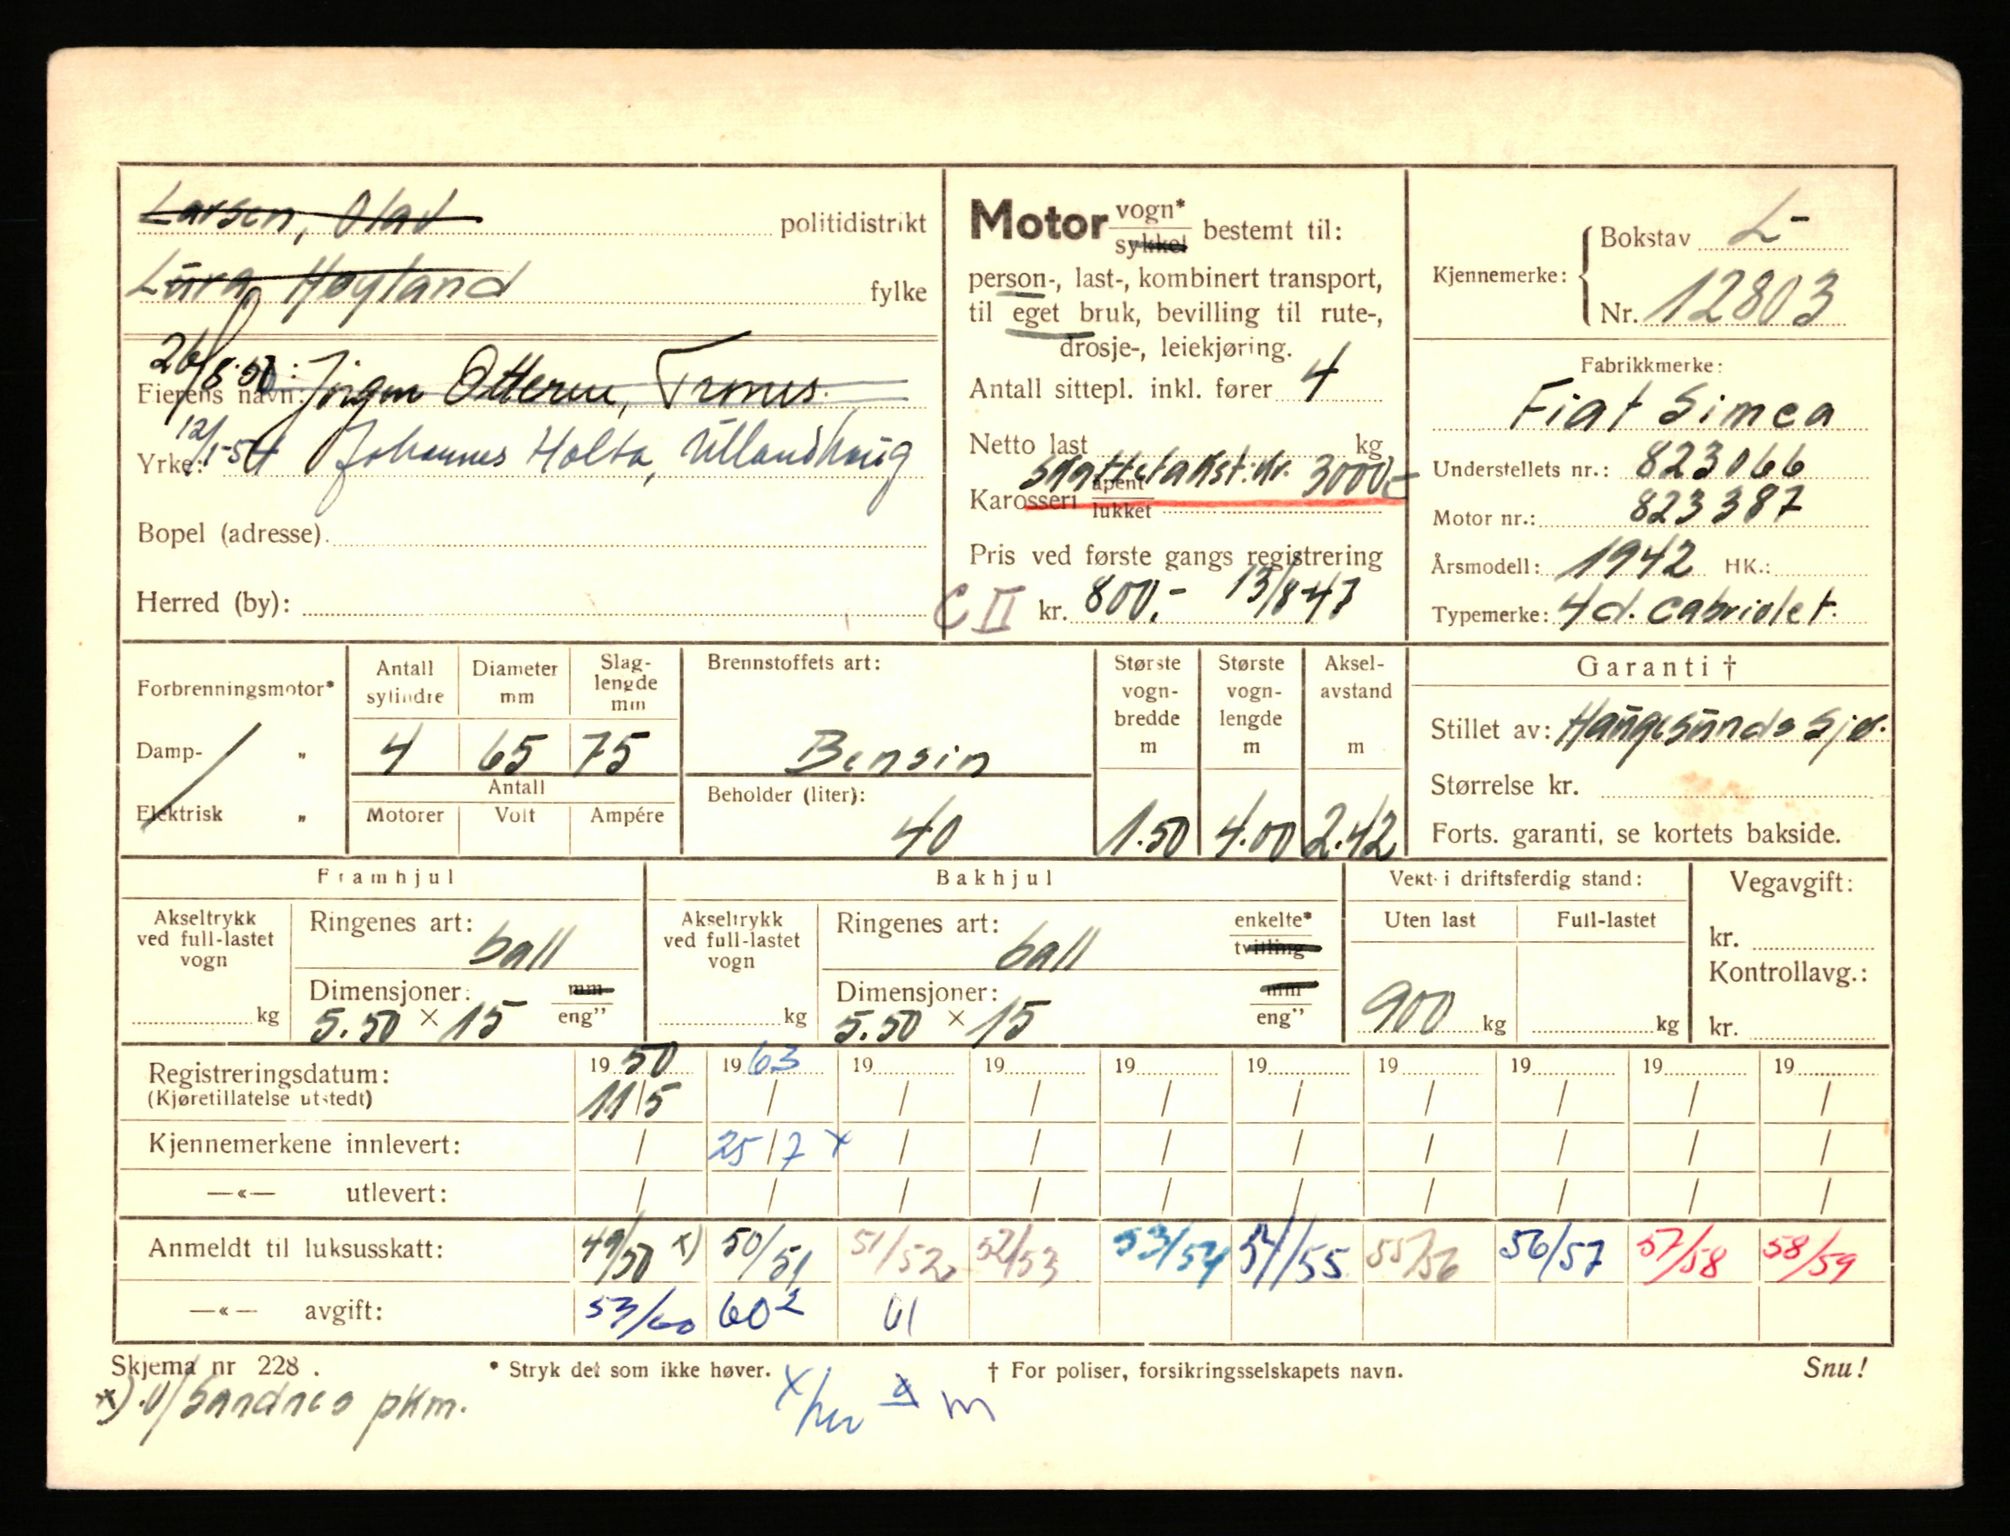 Larsen, Olav politidistrikt
Lura Høyland fylke
26/8-50: Jørgen
Fierens navn:
12/1-54 Johannes Holta, Ullandhaug
Yrke:
Bopel (adresse)
Herred (by):
Motor vogn*
sykkel bestemt til:
person-, last-, kombinert transport,
til eget bruk, bevilling til rute-,
drosje-, leiekjøring.
Antall sittepl. inkl. fører 4
Netto last kg
Skattetakst: kr. 3000,-
Karosseri åpent
lukket
Pris ved første gangs registrering
C II kr. 800,- 13/8-47
Kjennemerke: Bokstav L-
Nr. 12803
Fabrikkmerke:
Fiat Simca
Understellets nr.: 823066
Motor nr.: 823387
Årsmodell: 1942 HK.:
Typemerke: 4d. Cabriolet.
Forbrenningsmotor*
Damp- „
Elektrisk „
Antall sylindre Diameter mm Slag-lengde mm
4 65 75
Antall
Motorer Volt Ampére
Brennstoffets art:
Bensin
Beholder (liter):
40
Største vogn-bredde m Største vogn-lengde m Aksel-avstand m
1.50 4.00 2.42
Garanti †
Stillet av: Haugesunds Sjø.
Størrelse kr.
Forts. garanti, se kortets bakside.
Framhjul
Akseltrykk ved full-lastet vogn
kg
Ringenes art:
ball
Dimensjoner: mm
5.50 × 15 eng"
Bakhjul
Akseltrykk ved full-lastet vogn
kg
Ringenes art: enkelte*
ball tvilling
Dimensjoner: mm
5.50 × 15 eng"
Vekt i driftsferdig stand:
Uten last Full-lastet
900 kg kg
Vegavgift:
kr.
Kontrollavg.:
kr.
Registreringsdatum: 1950 1963 19 19 19 19 19 19 19 19
(Kjøretillatelse utstedt) 11/5 / / / / / / / / /
Kjennemerkene innlevert: / 25/7 x / / / / / / / /
—«— utlevert: / / / / / / / / / /
Anmeldt til luksusskatt: 49/50 x) 50/51 51/52 52/53 53/54 54/55 55/56 56/57 57/58 58/59
—«— avgift: 53/60 60² 61
Skjema nr 228. * Stryk det som ikke høver. † For poliser, forsikringsselskapets navn. Snu!
x) U/Sandnes pkm.